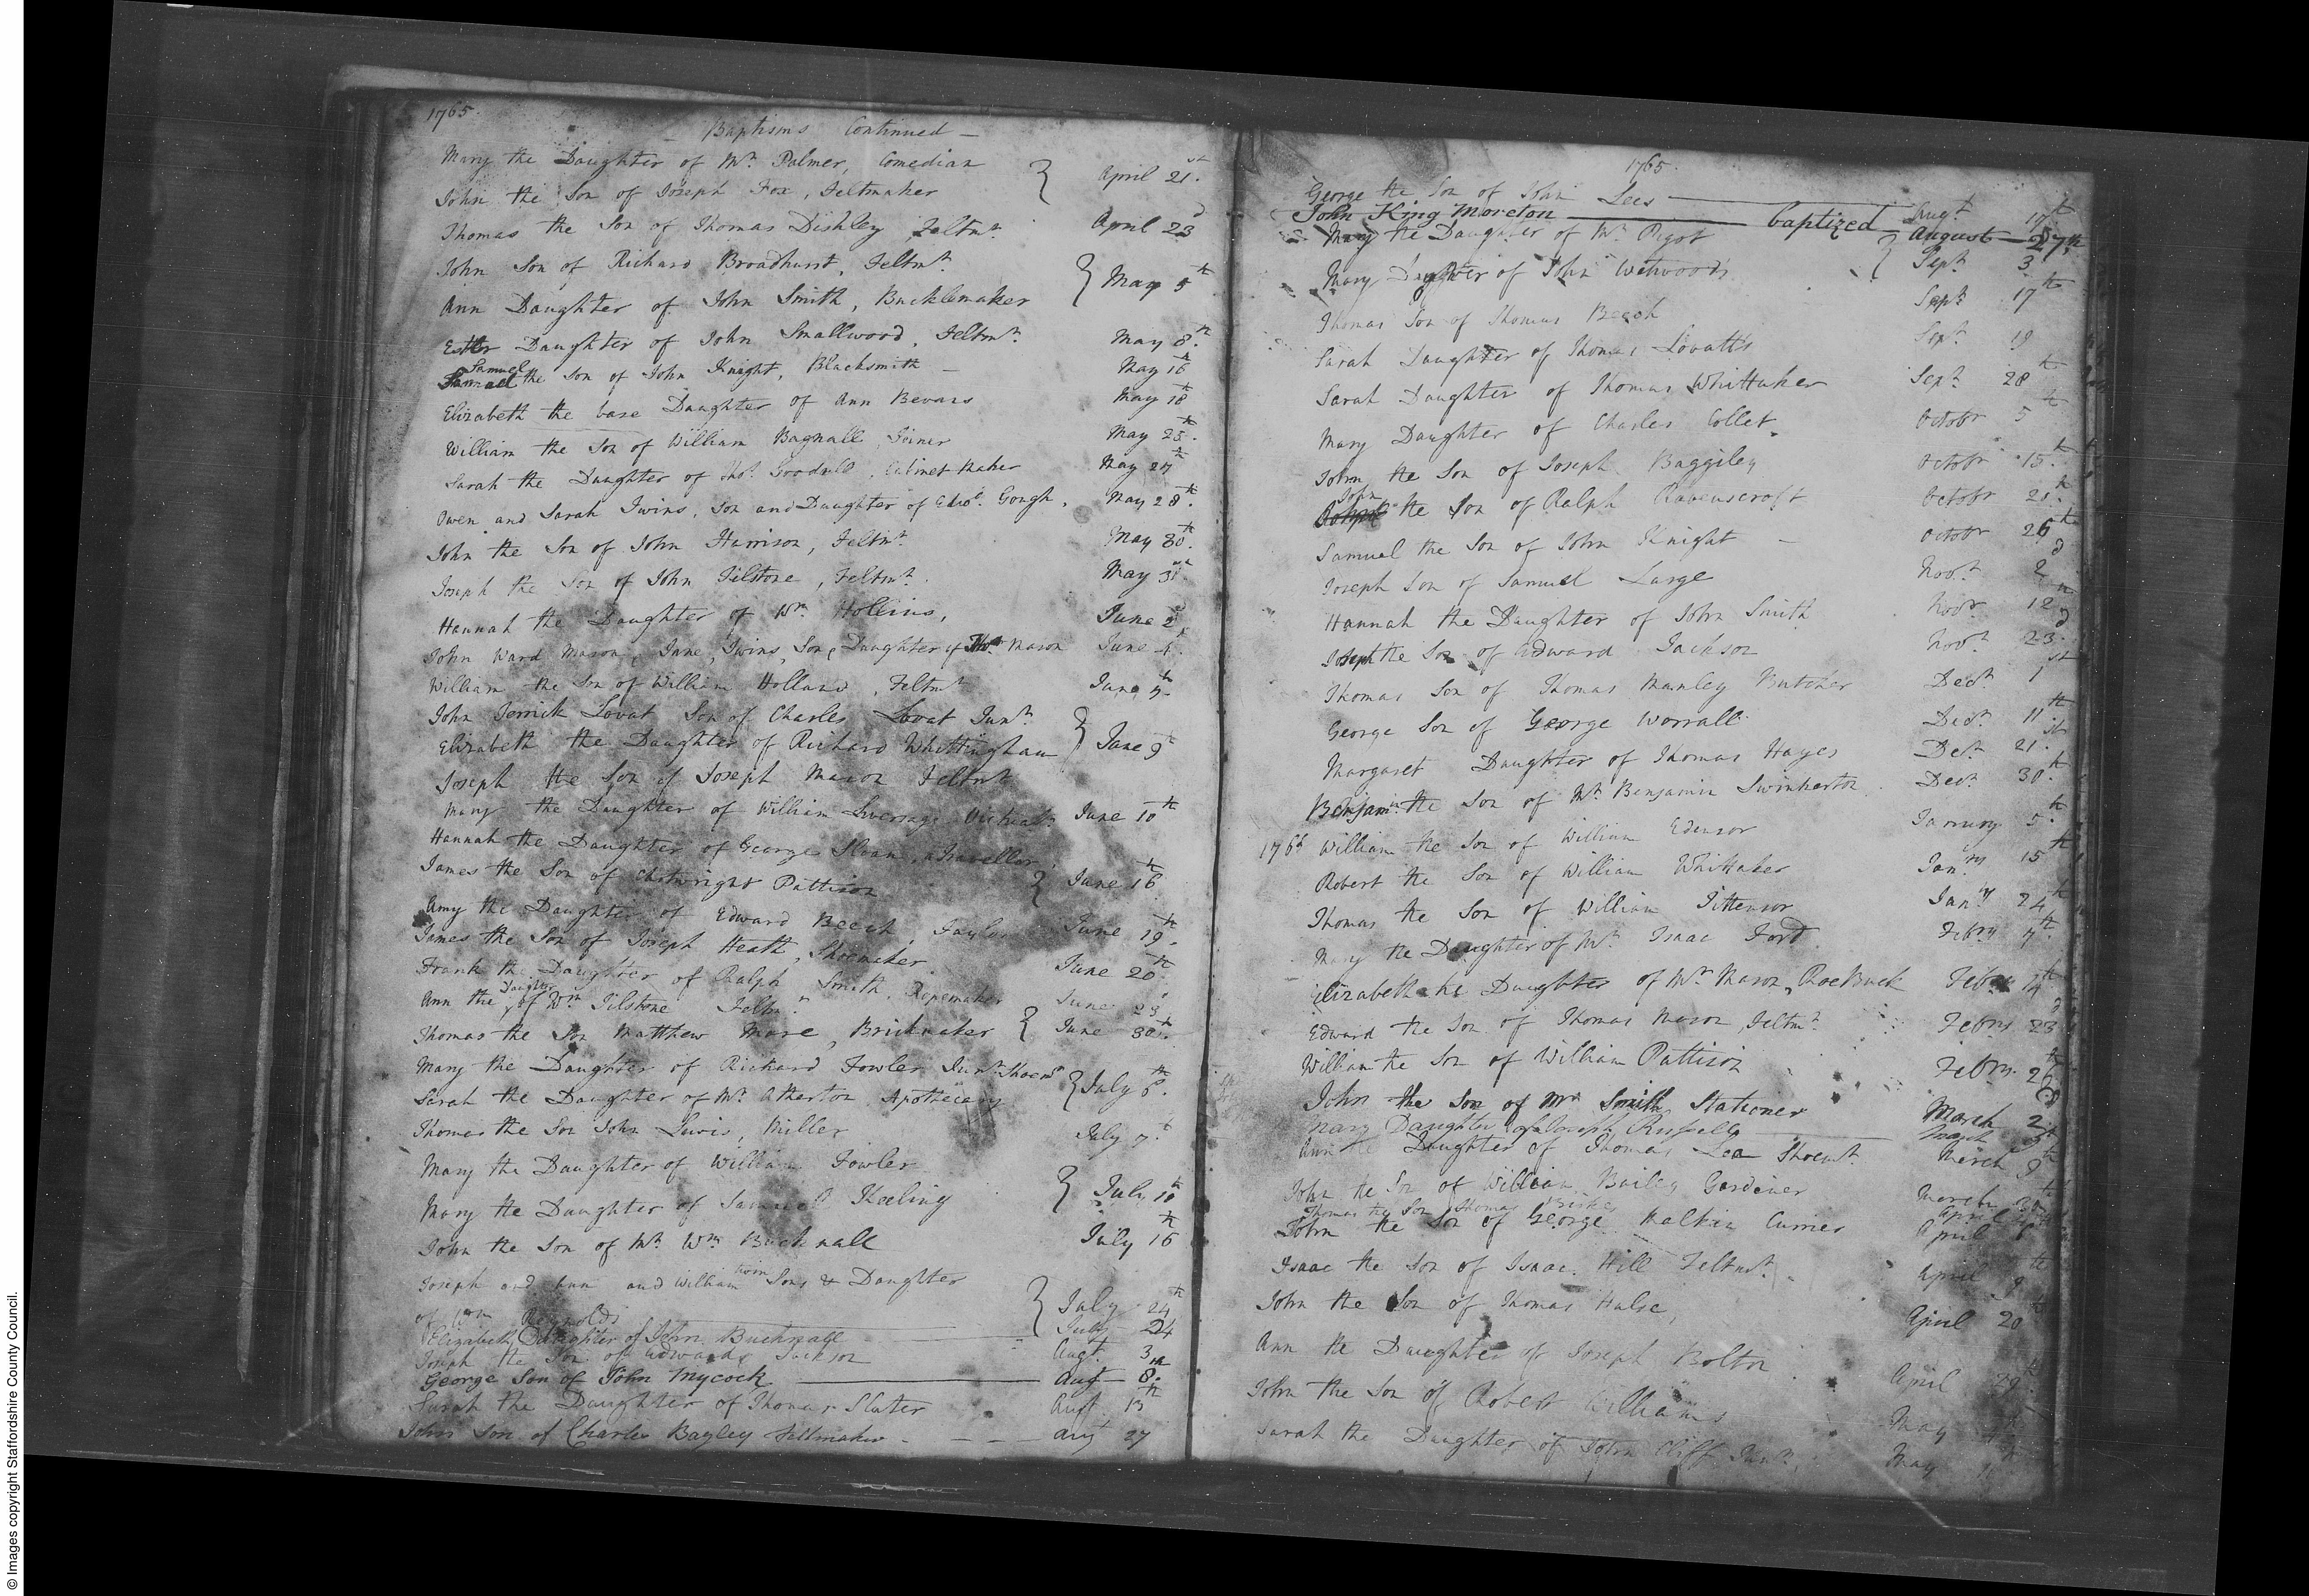 1765.
Baptisms Continued —
Mary the Daughter of Mr. Palmer, Comedian
John the Son of Joseph Fox, Feltmaker } April 21st.
Thomas the Son of Thomas Dishley, Feltmr. April 23d
John Son of Richard Broadhurst, Feltmr.
Ann Daughter of John Smith, Bucklemaker } May 5th
Esther Daughter of John Smallwood, Feltmr. May 8th.
Samuel
Samuel the Son of John Knight, Blacksmith — May 16th
Elizabeth the base Daughter of Ann Bevans May 18th
William the Son of William Bagnall Joiner May 25th.
Sarah the Daughter of Thos. Cabinet Maker May 27th
Owen and Sarah Twins, Son and Daughter of Edwd. Gough, May 28th.
John the Son of John Harrison, Feltmr. May 30th.
Joseph the Son of John Tilstone, Feltmr. May 31st.
Hannah the Daughter of Wm. Hollins, June 2d
John Ward Mason, Jane, Twins, Son, Daughter of Thos. Mason June 4th.
William the Son of William Holland, Feltmr June
John Jerrick Lovat Son of Charles Lovat Junr.
Elizabeth the Daughter of Richard Whittingham } June 9th
Joseph the Son of Joseph Mason Feltmr
Mary the Daughter of William June 10th
Hannah the Daughter of George Sloan, a Traveller,
James the Son of Chetwright Pattison } June 16th
Amy the Daughter of Edward Beech, Taylor June 19th.
James the Son of Joseph Heath, Shoemaker June 20th
Frank the Daughter of Ralph Smith, Ropemaker June 23
Daughter
Ann the of Wm Tilstone Feltmr.
Thomas the Son Matthew More, Brickmaker } June 30th.
Mary the Daughter of Richard Fowler Junr. Shoemr
Sarah the Daughter of Mr. Atherton Apothecary } July 6th.
Thomas the Son John Lewis, Miller July 7th
Mary the Daughter of William Fowler
Mary the Daughter of Samuel Keeling } July 10th
John the Son of Mr. Wm. Bucknall July 16th
Joseph and Ann and William twin Sons & Daughter
of Wm Reynolds } July 24th
Elizabeth Daughter of John Bucknall July 24
Joseph the Son of Edward Jackson Augt. 3
George Son of John Mycock Augt 8th.
Sarah the Daughter of Thomas Slater Augt 13th
John Son of Charles Bagley Feltmaker — — — Augt 27
1765.
George the Son of John Lees Augt. 19th
John King Moreton baptized August 27th
Mary the Daughter of Mr. Pigot } Septr 3
Mary Daughter of John Wetwoods
Thomas Son of Thomas Beech Septr 17th
Sarah Daughter of Thomas Lovatts Septr 19
Sarah Daughter of Thomas Whittaker Septr 28th
Mary Daughter of Charles Collet. Octobr 5th
John the Son of Joseph Baggiley Octobr 15th.
John
the Son of Ralph Ravenscroft Octobr 21st.
Samuel the Son of John Knight — Octobr 26th
Joseph Son of Samuel Large Novr. 2d
Hannah the Daughter of John Smith Novr. 12th
Joseph the Son of Edward Jackson Novr. 23d.
Thomas Son of Thomas Manley Butcher Decr. 1st
George Son of George Worrall Decr. 11th
Margaret Daughter of Thomas Hayes Decr 21st.
Benjamin the Son of Mr. Benjamin Swinnerton Decr 30th.
1766 William the Son of William Edensor January 5th.
Robert the Son of William Whittaker Janry 15th
Thomas the Son of William Tittensor Janry 24th
Mary the Daughter of Mr. Isaac Ford Febry 7th.
Elizabeth the Daughter of Mr Mason, RoeBuck Febry 14th
Edward the Son of Thomas Mason Feltmr. Febry 23d
William the Son of William Pattison Febry. 26th
John the Son of Mr. Smith Stationer March 2d
Mary Daughter of Joseph Russell March
Ann the Daughter of Thomas Lea Shoemr. March 9th
John the Son of William Bailey Gardiner March 30th
Thomas the Son Thomas April
John the Son of George Malkin Currier April 6
Isaac the Son of Isaac Hill Feltmr. April 9th
John the Son of Thomas Hulse, April 20th
Ann the Daughter of Joseph Bolton April
John the Son of Robert Williams May
Sarah the Daughter of John Cliff Junr. May
© Images copyright Staffordshire County Council.